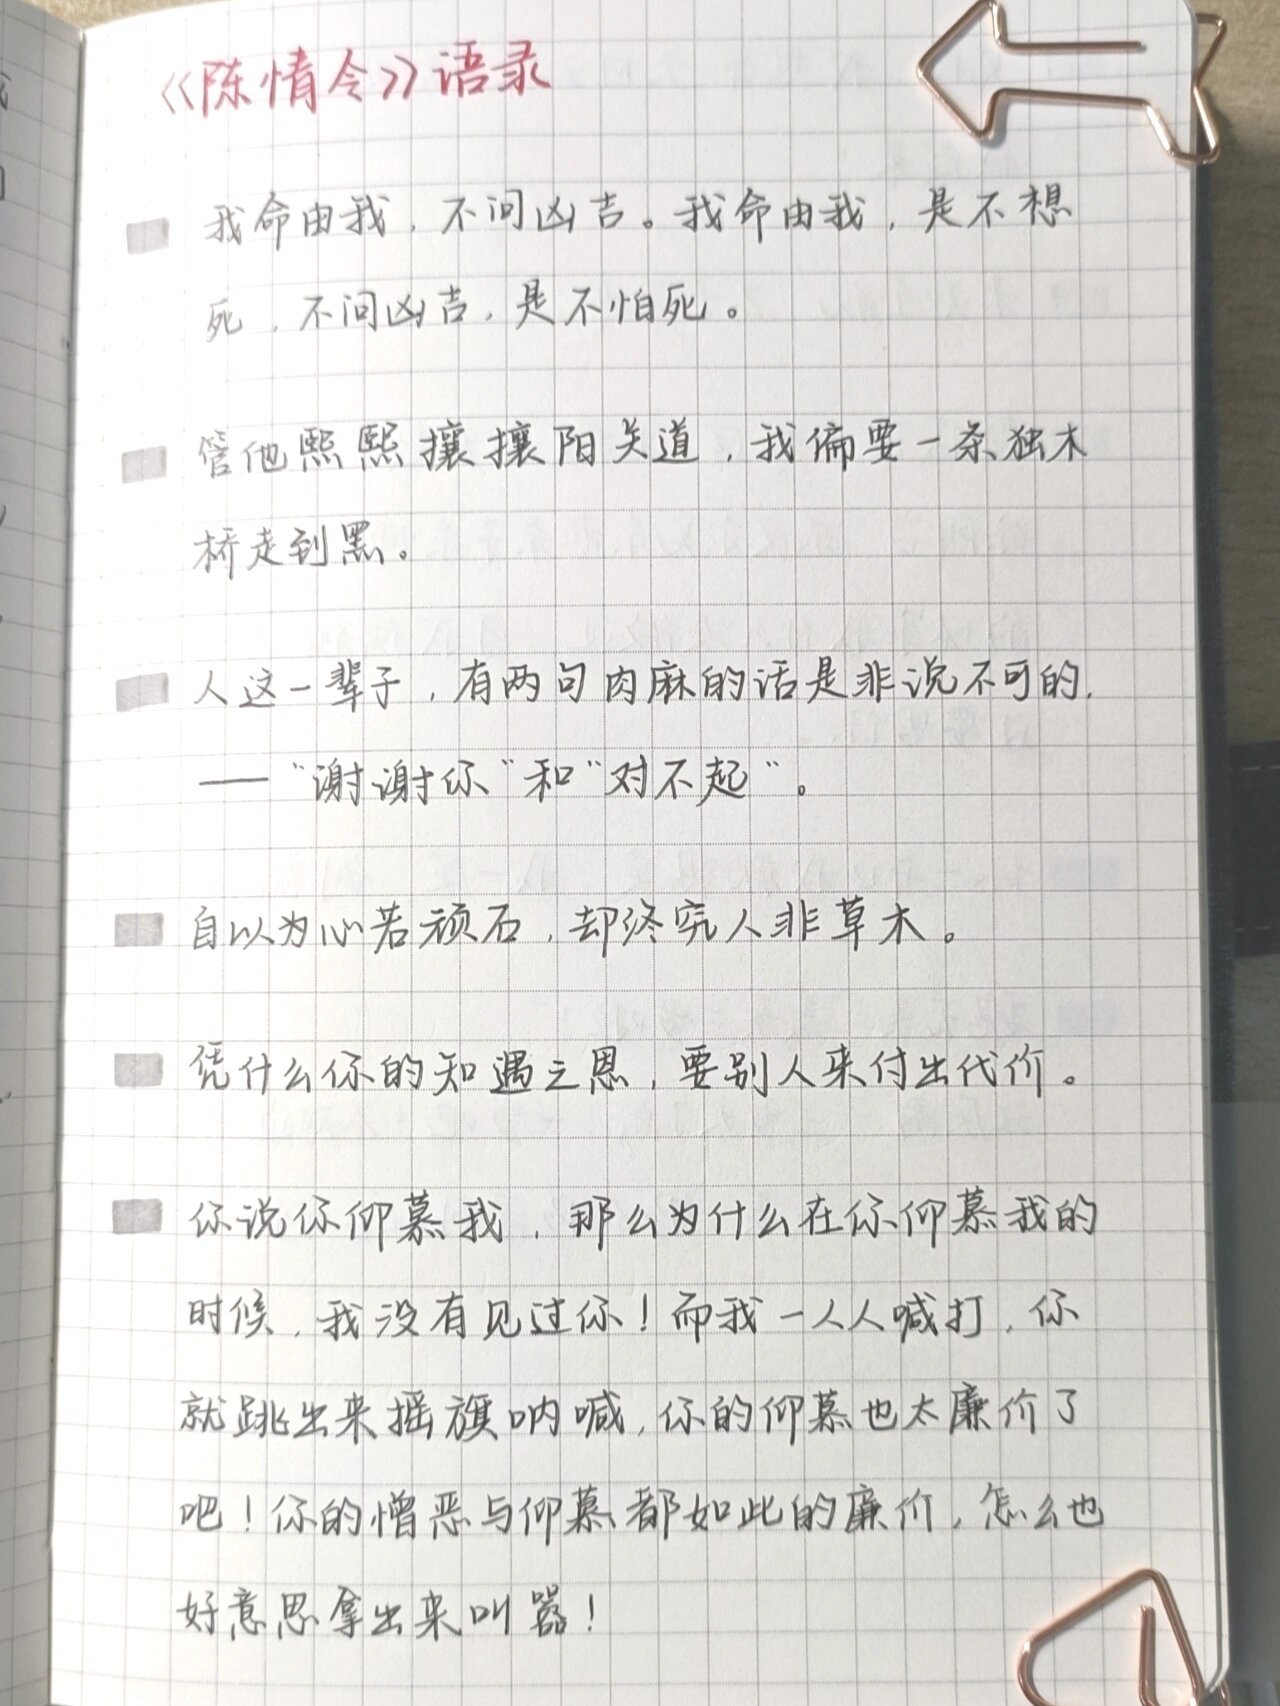 《陈情令》语录
我命由我，不问凶吉。我命由我，是不想
死，不问凶吉，是不怕死。
管他熙熙攘攘阳关道，我偏要一条独木
桥走到黑。
人这一辈子，有两句肉麻的话是非说不可的，
——“谢谢你”和“对不起”。
自以为心若顽石，却终究人非草木。
凭什么你的知遇之恩，要别人来付出代价。
你说你仰慕我，那么为什么在你仰慕我的
时候，我没有见过你！而我一人人喊打，你
就跳出来摇旗呐喊，你的仰慕也太廉价了
吧！你的憎恶与仰慕都如此的廉价，怎么也
好意思拿出来叫嚣！